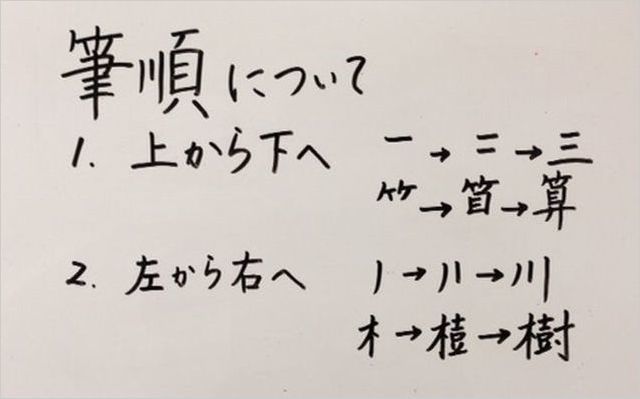 筆順について
1. 上から下へ 一→二→三
𥫗→筫→算
2. 左から右へ 丿→丿丨→川
木→𣚊→樹